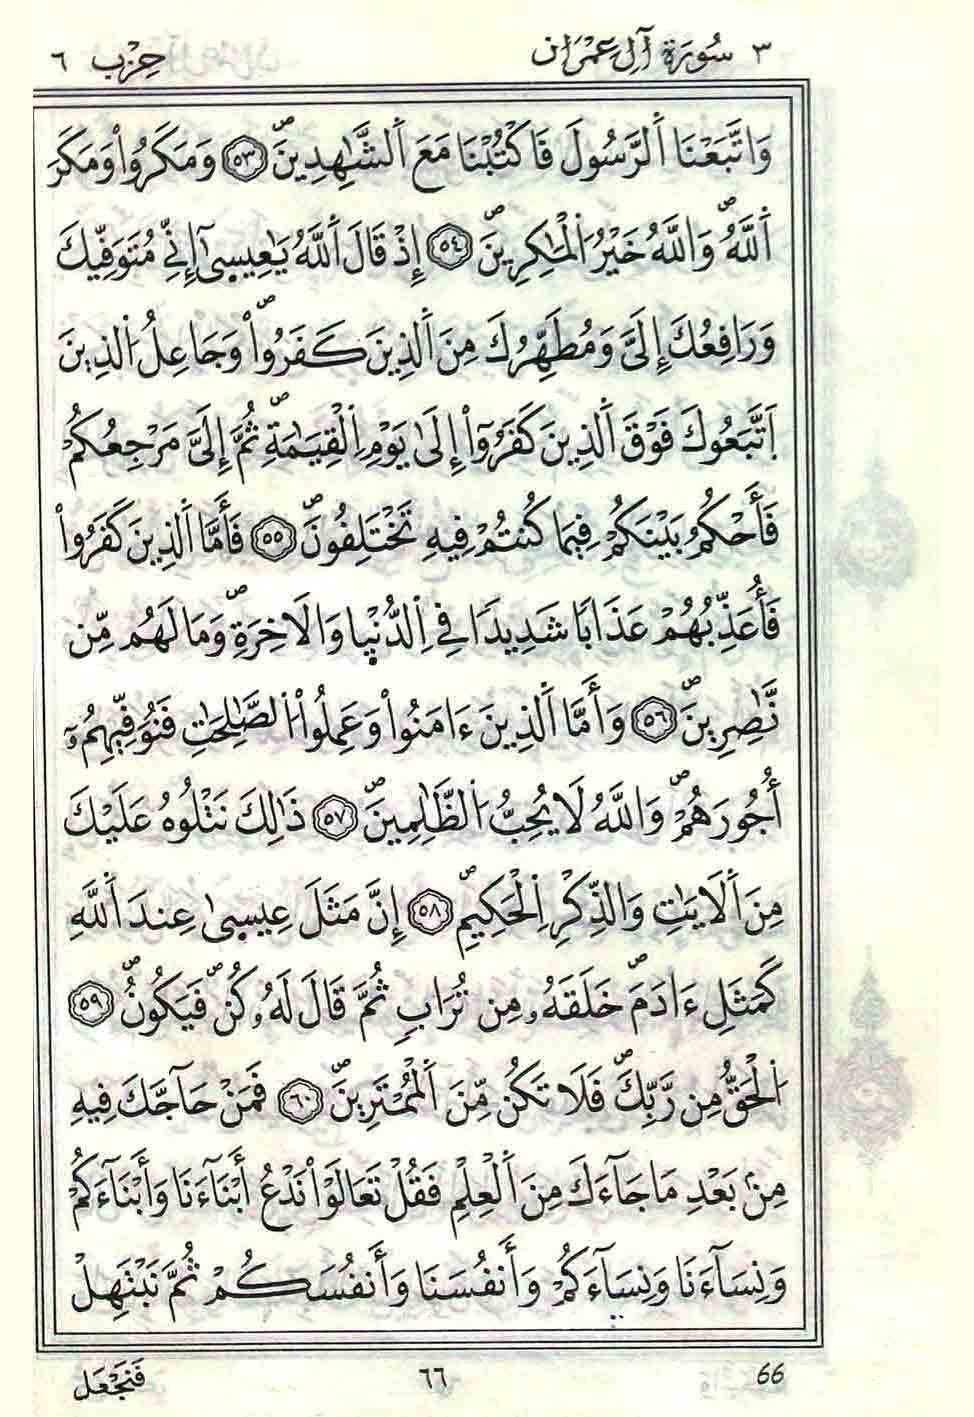 ٣ سُورَةِ آلِ عِمْرَان حِزْب ٦
وَاتَّبَعْنَا اَ۬لرَّسُولَ فَاكْتُبْنَا مَعَ اَ۬لشَّٰهِدِينَۖ ٥٣ وَمَكَرُواْ وَمَكَرَ
اَ۬للَّهُۖ وَاللَّهُ خَيْرُ اُ۬لْمَٰكِرِينَۖ ٥٤ إِذْ قَالَ اَ۬للَّهُ يَٰعِيسىٰٓ إِنِّے مُتَوَفِّيكَ
وَرَافِعُكَ إِلَيَّ وَمُطَهِّرُكَ مِنَ اَ۬لذِينَ كَفَرُواْۖ وَجَاعِلُ اُ۬لذِينَ
اَ۪تَّبَعُوكَ فَوْقَ اَ۬لذِينَ كَفَرُوٓاْ إِلَىٰ يَوْمِ اِ۬لْقِيَٰمَةِۖ ثُمَّ إِلَيَّ مَرْجِعُكُمْ
فَأَحْكُمُ بَيْنَكُمْ فِيمَا كُنتُمْ فِيهِ تَخْتَلِفُونَۖ ٥٥ فَأَمَّا اَ۬لذِينَ كَفَرُواْ
فَأُعَذِّبُهُمْ عَذَاباٗ شَدِيداٗ فِے اِ۬لدُّنْيا وَالَاخِرَةِۖ وَمَا لَهُم مِّن
نَّٰصِرِينَۖ ٥٦ وَأَمَّا اَ۬لذِينَ ءَامَنُواْ وَعَمِلُواْ اُ۬لصَّٰلِحَٰتِ فَنُوَفِّيهِمُۥٓ
أُجُورَهُمْۖ وَاللَّهُ لَا يُحِبُّ اُ۬لظَّٰلِمِينَۖ ٥٧ ذَٰلِكَ نَتْلُوهُ عَلَيْكَ
مِنَ اَ۬لَايَٰتِ وَالذِّكْرِ اِ۬لْحَكِيمِۖ ٥٨ إِنَّ مَثَلَ عِيسىٰ عِندَ اَ۬للَّهِ
كَمَثَلِ ءَادَمَۖ خَلَقَهُۥ مِن تُرَابٖ ثُمَّ قَالَ لَهُۥ كُنۖ فَيَكُونُۖ ٥٩
اَ۬لْحَقُّ مِن رَّبِّكَۖ فَلَا تَكُن مِّنَ اَ۬لْمُمْتَرِينَۖ ٦٠ فَمَنْ حَآجَّكَ فِيهِ
مِنۢ بَعْدِ مَا جَآءَكَ مِنَ اَ۬لْعِلْمِ فَقُلْ تَعَالَوْاْ نَدْعُ أَبْنَآءَنَا وَأَبْنَآءَكُمْ
وَنِسَآءَنَا وَنِسَآءَكُمْ وَأَنفُسَنَا وَأَنفُسَكُمْ ثُمَّ نَبْتَهِلْ
66 ٦٦ فَنَجْعَل